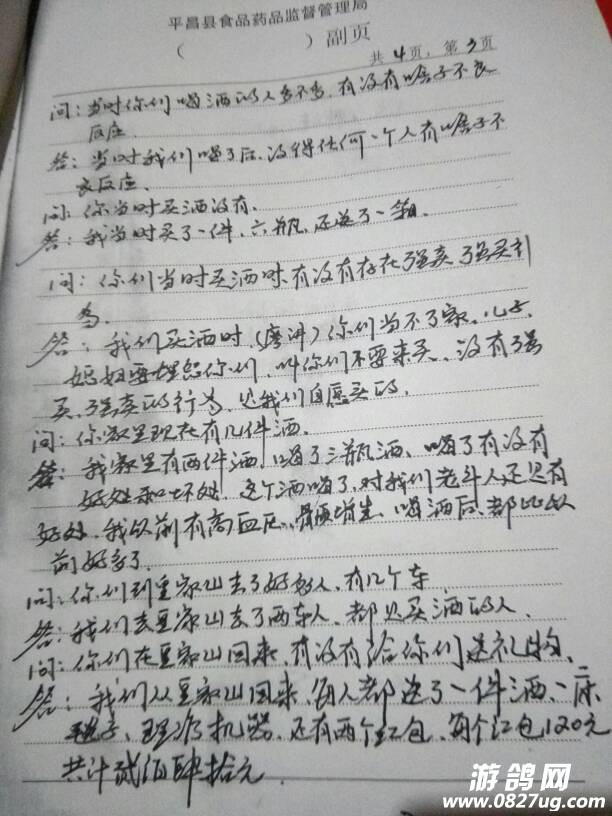 平昌县食品药品监督管理局
( ) 副页
共 4 页，第 3 页
问：当时你们喝酒的人多不多，有没有啥子不良
反应。
答：当时我们喝了后，没得任何一个人有啥子不
良反应。
问：你当时买酒没有。
答：我当时买了一件，六瓶，还送了一箱。
问：你们当时买酒时有没有存在强卖强买行
为。
答：我们买酒时，(唐洪)你们当不了家，儿子、
媳妇要埋怨你们，叫你们不要来买，没有强
买、强卖的行为，是我们自愿买的。
问：你家里现在有几件酒。
答：我家里有两件酒，喝了三瓶酒，喝了有没有
好处和坏处，这个酒喝了，对我们老年人还是有
好处，我以前有高血压、骨质增生，喝酒后都比以
前好多了。
问：你们到皇家山去了好多人，有几个车
答：我们去皇家山去了两车人，都是买酒的人。
问：你们在皇家山回来，有没有给你们送礼物。
答：我们从皇家山回来，每人都送了一件酒、一床
毯子、理疗机器，还有两个红包，每个红包120元
共计贰佰肆拾元。
游鸽网
www.0827ug.com